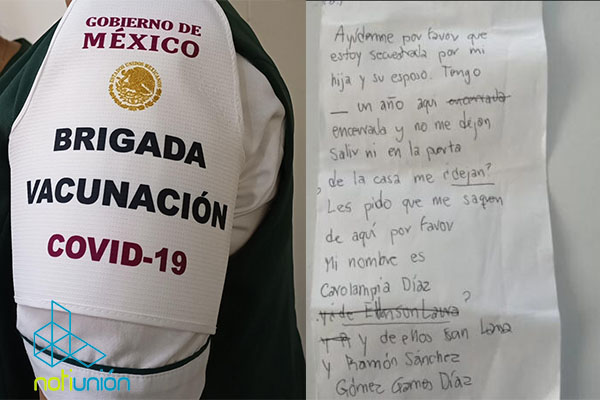 GOBIERNO DE
MÉXICO
ESTADOS UNIDOS MEXICANOS
BRIGADA
VACUNACIÓN
COVID-19
notiunión
Ayúdenme por favor que
estoy secuestrada por mi
hija y su esposo. Tengo
_ un año aqui encerrada
encerrada y no me dejan
salir ni en la puerta
de la casa me dejan?
Les pido que me saquen
de aquí por favor
Mi nombre es
Carolampia Díaz
?
y de ellos son Lana
y Ramón Sánchez
Gómez Gomes Díaz